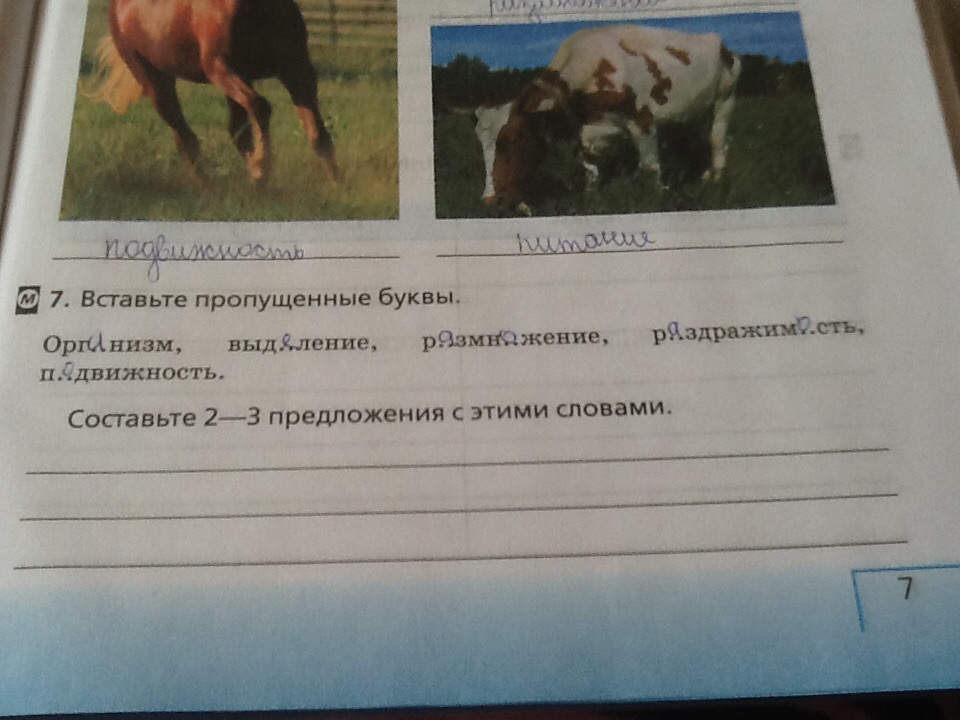 подвижность питание
М 7. Вставьте пропущенные буквы.
Организм, выделение, размножение, раздражимо.сть,
п.одвижность.
Составьте 2—3 предложения с этими словами.
7